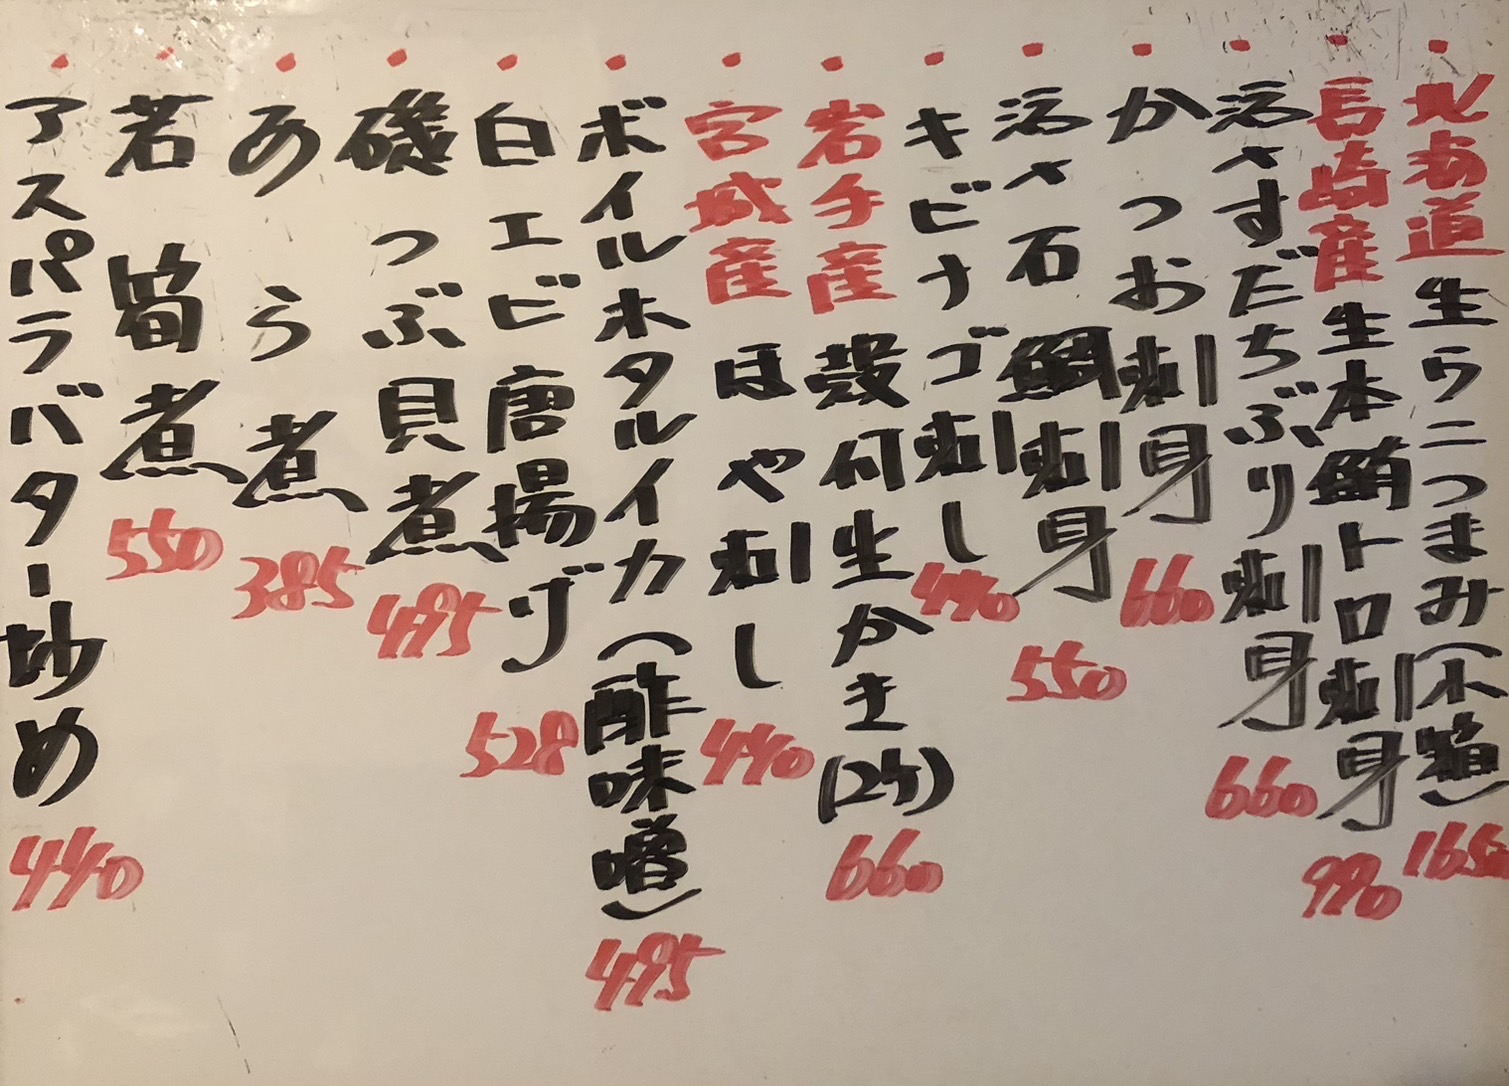 北海道生うニつまみ(木箱) 1650
長崎産生本鮪トロ刺身 990
活〆すだちぶり刺身 660
かつお刺身 660
活〆石鯛刺身 550
キビナゴ刺し 440
岩手産殻付生かき(2ケ) 660
宮城産ほや刺し 440
ボイルホタルイカ(酢味噌) 495
白エビ唐揚げ 528
磯つぶ貝煮 495
あら煮 385
若筍煮 550
アスパラバター炒め 440